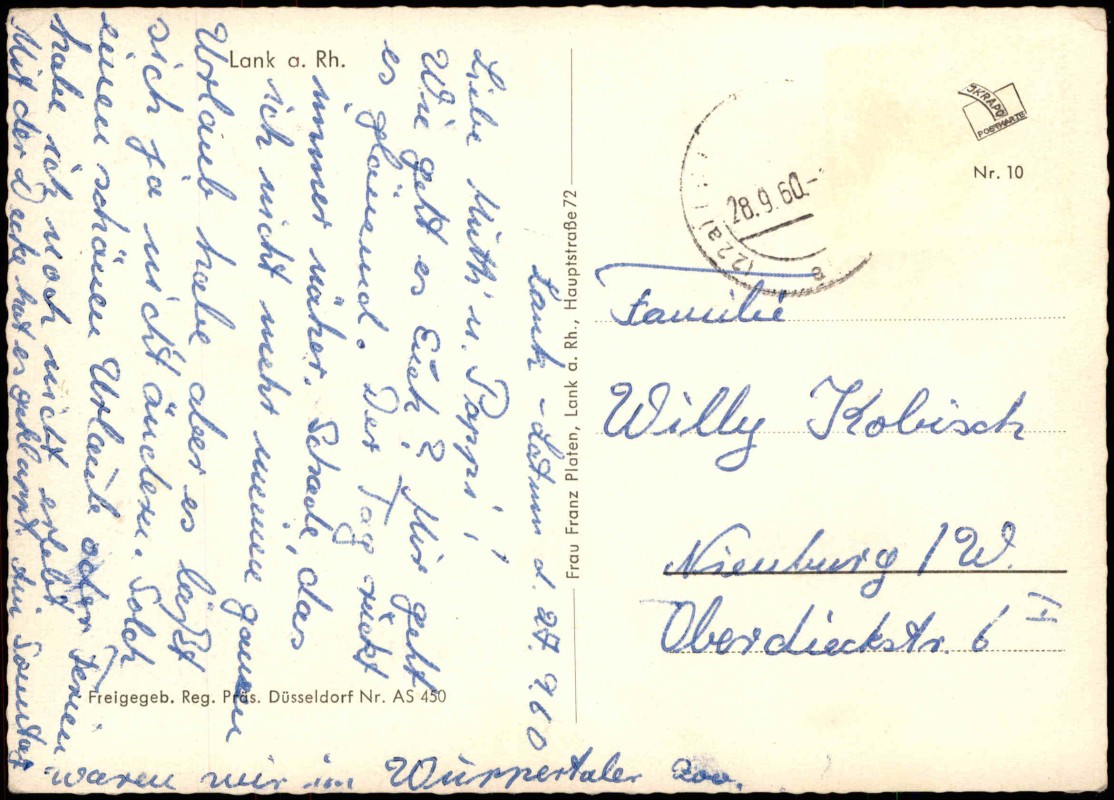 Lank a. Rh.
Lank-Latum d. 27.9.60
Liebe Mutti u. Pappi!
Wie geht es Euch? Mir geht
es glänzend. Der Tag rückt
immer näher. Schade, das
ich nicht mehr meine ganzen
Urlaub habe aber es läßt
sich ja nicht ändern. Solch
einen schönen Urlaub oder Ferien
habe ich noch nicht erlebt
Mit der Decke hat es geklappt. Am Sonntag
waren wir im Wuppertaler Zoo.
Freigegeb. Reg. Präs. Düsseldorf Nr. AS 450
Frau Franz Platen, Lank a. Rh., Hauptstraße 72
SKRAPO
POSTKARTE
Nr. 10
(22a)
28.9.60.-
e
Familie
Willy Kobisch
Nienburg / W.
Oberdieckstr. 6